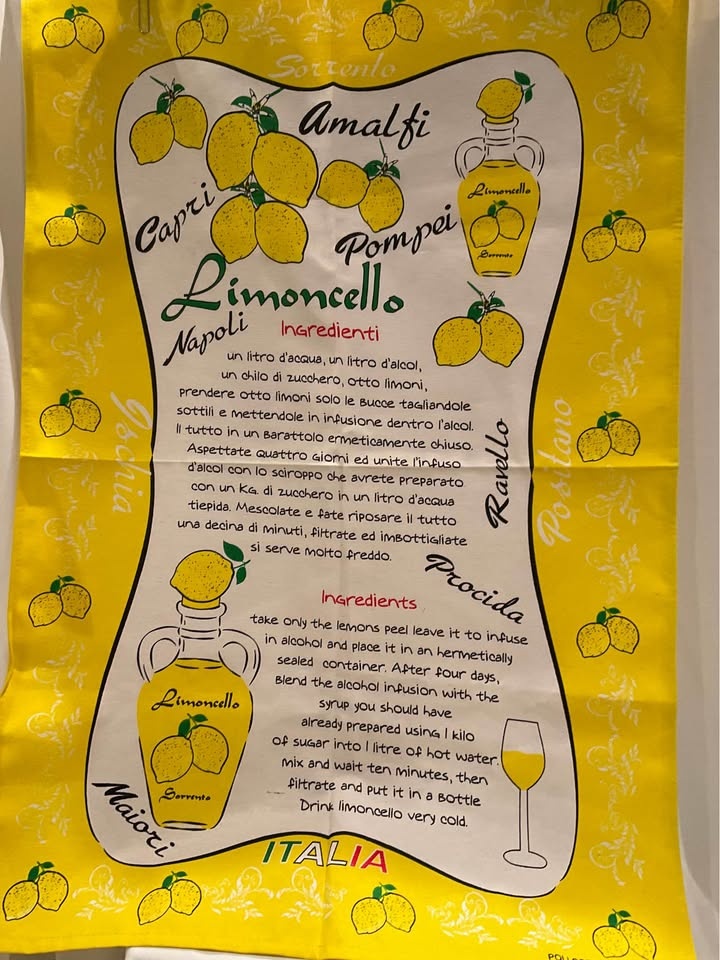 Sorrento
Amalfi
Capri
Pompei
Limoncello
Sorrento
Limoncello
Napoli
Ingredienti
un litro d'acqua, un litro d'alcol,
un chilo di zucchero, otto limoni,
prendere otto limoni solo le bucce tagliandole
sottili e mettendole in infusione dentro l'alcol.
Il tutto in un barattolo ermeticamente chiuso.
Aspettate quattro giorni ed unite l'infuso
d'alcol con lo sciroppo che avrete preparato
con un Kg. di zucchero in un litro d'acqua
tiepida. Mescolate e fate riposare il tutto
una decina di minuti, filtrate ed imbottigliate
si serve molto freddo.
Ischia
Ravello
Positano
Procida
Ingredients
take only the lemons peel leave it to infuse
in alcohol and place it in an hermetically
sealed container. After four days,
Blend the alcohol infusion with the
syrup you should have
already prepared using 1 kilo
of sugar into 1 litre of hot water.
mix and wait ten minutes, then
filtrate and put it in a bottle
Drink limoncello very cold.
Limoncello
Sorrento
Maiori
ITALIA